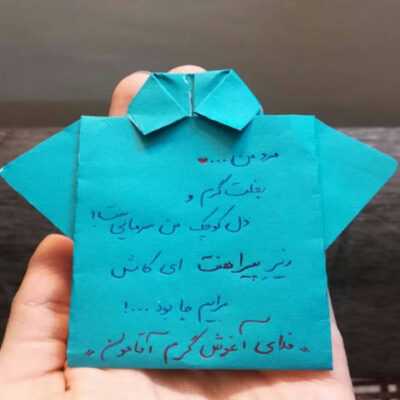 مرد من ...♥
بغلت گرم و
دل کوچک من سرمایی ست!
زیر پیراهنت ای کاش
برایم جا بود ...!
«فدای آغوش گرم آقامون»